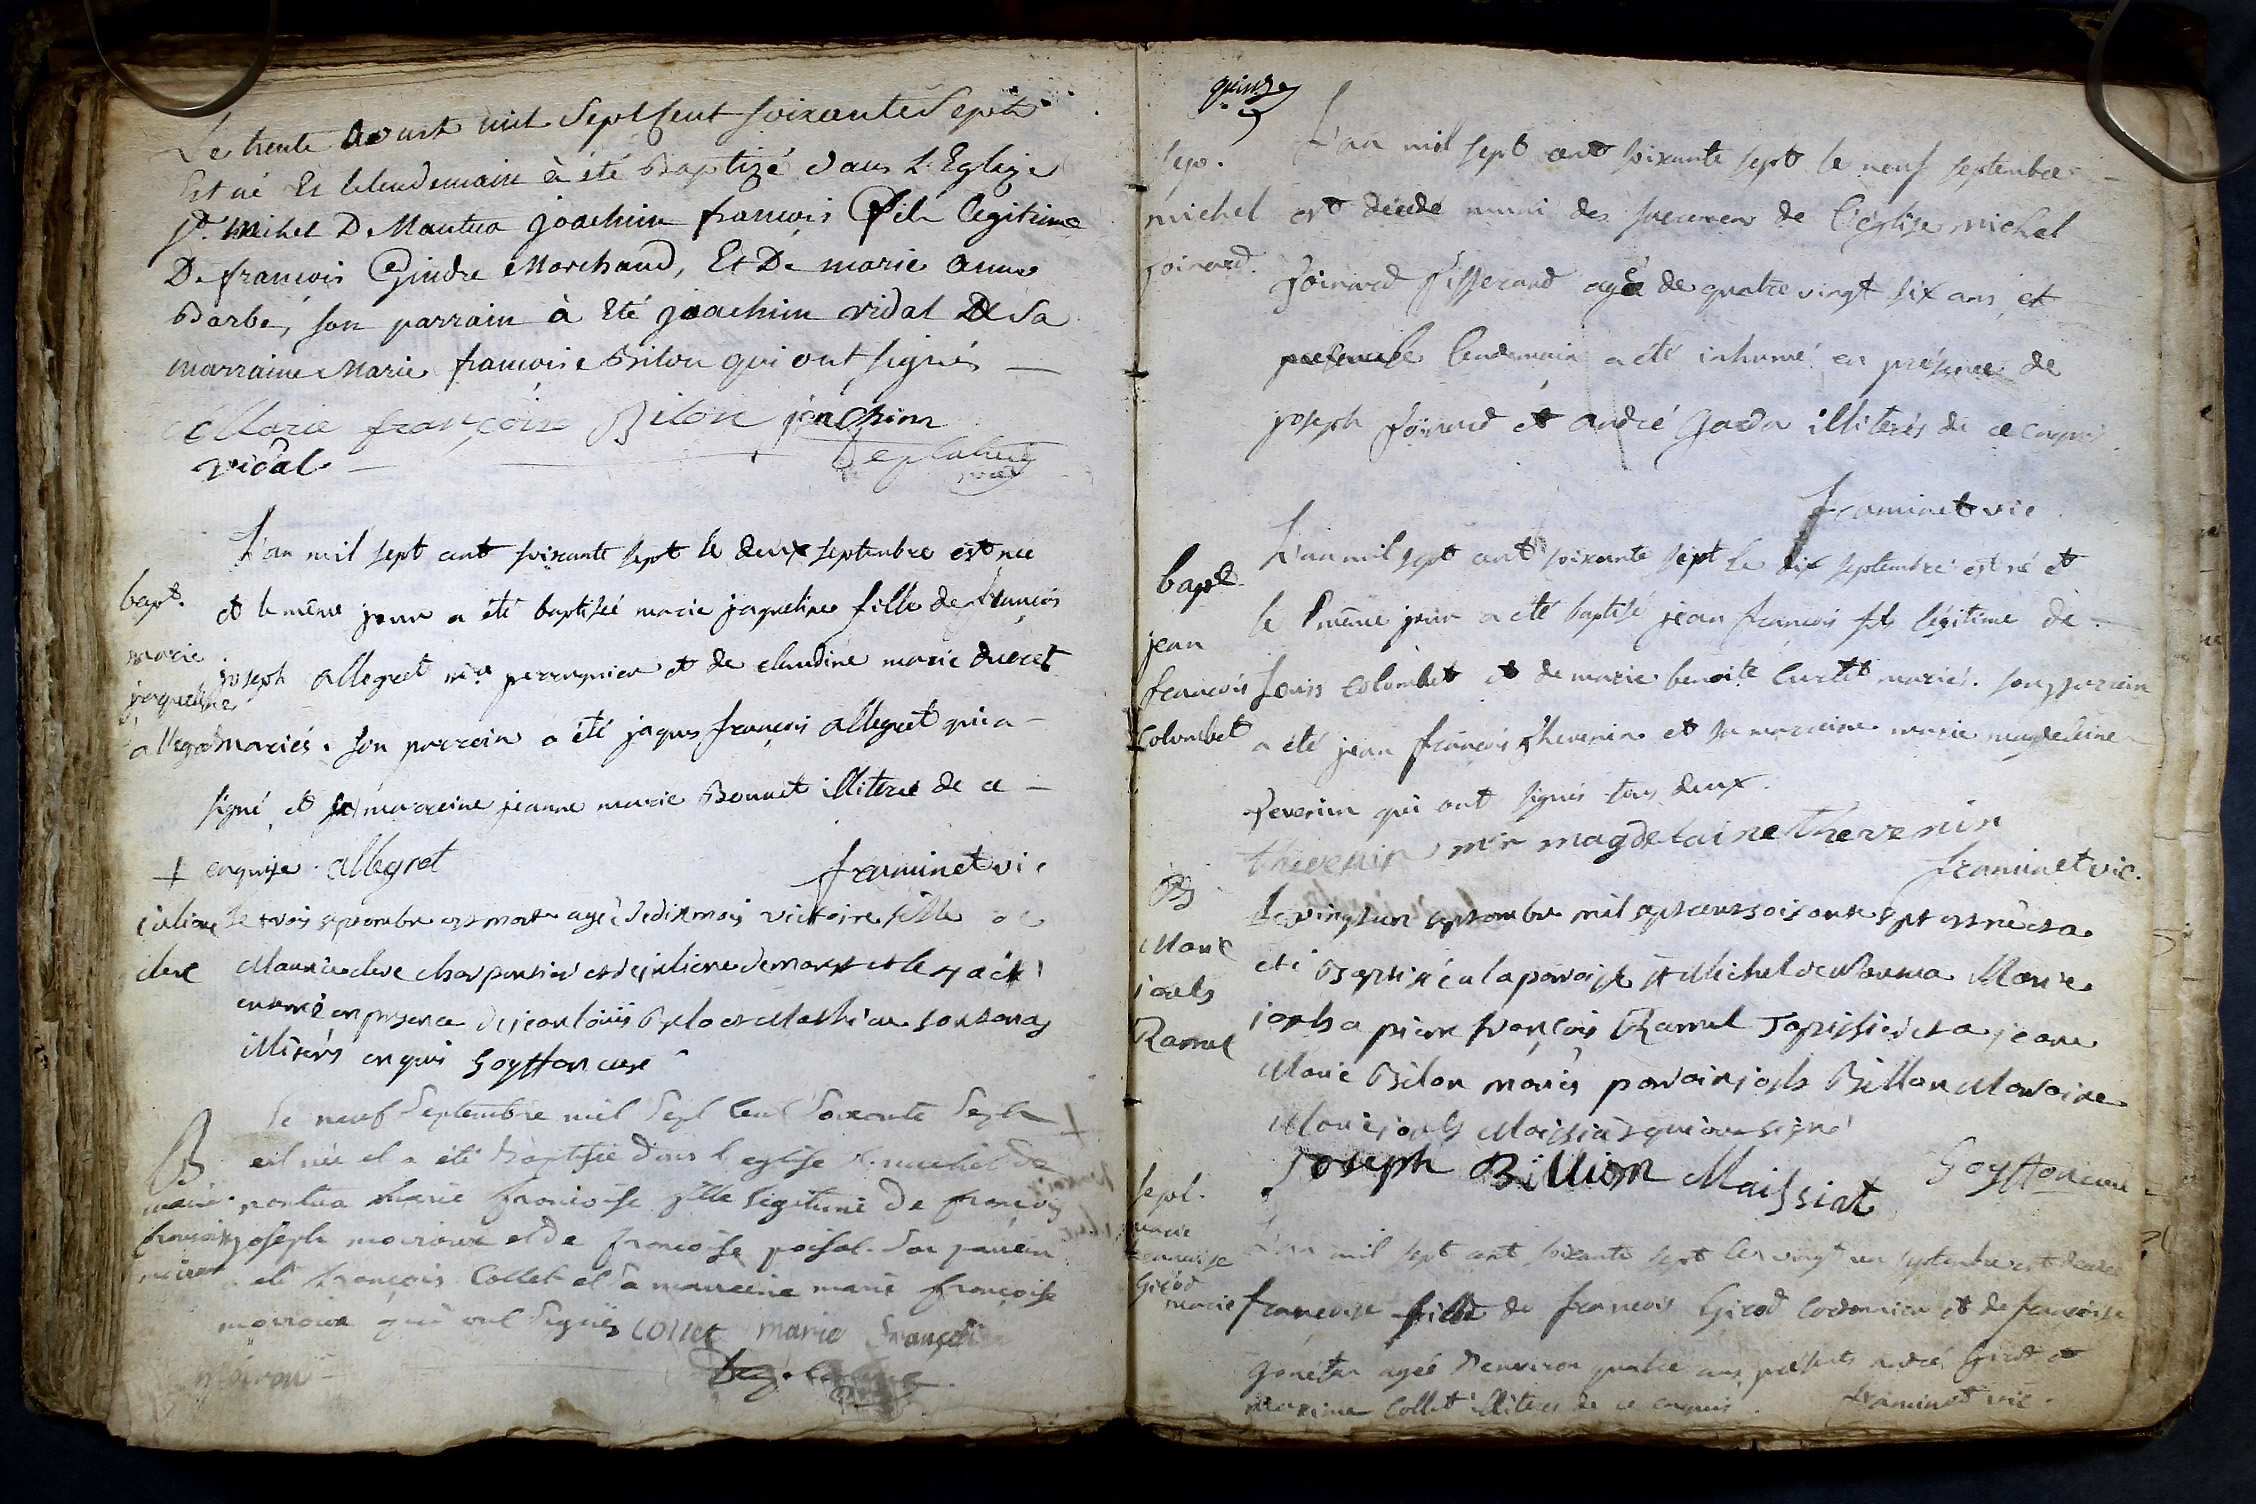 Le trente Aoust mil Sept Cent soixante Sept
Est né Et le lendemain à été Baptizé dans L'Eglize
St. Michel De Nantua joachim francois Fils legitime
De francois Gindre Marchand, Et De marie anne
Barbe, son parrain à Eté joachim vidal Et Sa
marraine Marie francoise Bilon qui ont signés —
Marie françoise Bilon joachim
vidal —
L'an mil sept cent soixante sept le deux septembre est née
bapt. et le même jour a été baptisée marie jaqueline fille de françois
marie joseph allegret me perruquier et de claudine marie ducret
jaqueline
allegret mariés. son parrein a été jaques françois allegret qui a —
signé, et sa marreine jeanne marie Bonnet illiterée de ce —
+ enquise. allegret framinet vic
juliane Le trois septembre est morte agée de dix mois victoire fille de
cleve Maurice cleve charpentier et de juliene demaret et le 4 a été
enterré en presence de jean louis et Mathieu
illiterés enquis Goyffon curé
Le neuf Septembre mil Sept Cent Soixante Sept +
B est née et a été Baptisée dans l'eglise St. michel de
marie nantua Marie francoise fille legitime De francois
francoise joseph moiroux et De francoise poisat. Son parrein
moiroux a été François Collet et Sa marreine marie françoise
moiroux qui ont Signés collet marie françoise
moiroux —
quinze
sep. L'an mil sept cent soixante sept le neuf septembre —
michel est décédé muni des sacremens de l'église michel
foinard. foinard Tisserand agé de quatre vingt six ans, et
le lendemain a été inhumé en présence de
joseph foinard et andré illiterés de ce enquis.
framinet vic
L'an mil sept cent soixante sept le dix septembre est né et
bapt. le même jour a été baptisé jean françois fils légitime de —
jean
françois Louis Colombet et de marie benoite Curtet mariés. son parrein
Colombet a été jean françois Thevenin et sa marreine marie magdeleine
Tevenin qui ont signés tous deux.
thevenin mir magdelaine Thevenin
framinet vic.
B Le vingt un septembre mil sept cent soixante sept est né et a
Marie été Baptisé en la paroisse st Michel de Nantua Marie
josephs josephs a pierre françois Ramel Tapissier et a jeane
Ramel Marie Bilon mariés parrain josph Billon Maraine
Marie josph Maissiat qui ont signé
Joseph Billion Maissiat Goyffon curé
sepl.
marie L'an mil sept cent soixante sept le vingt un septembre est decedée
francoise
Girod
marie françoise fille de francois Girod Cordonnier et de francoise
agée d'environ quatre ans, présents andré Girod et
maxime Collet illiteres de ce enquis. framinet vic.